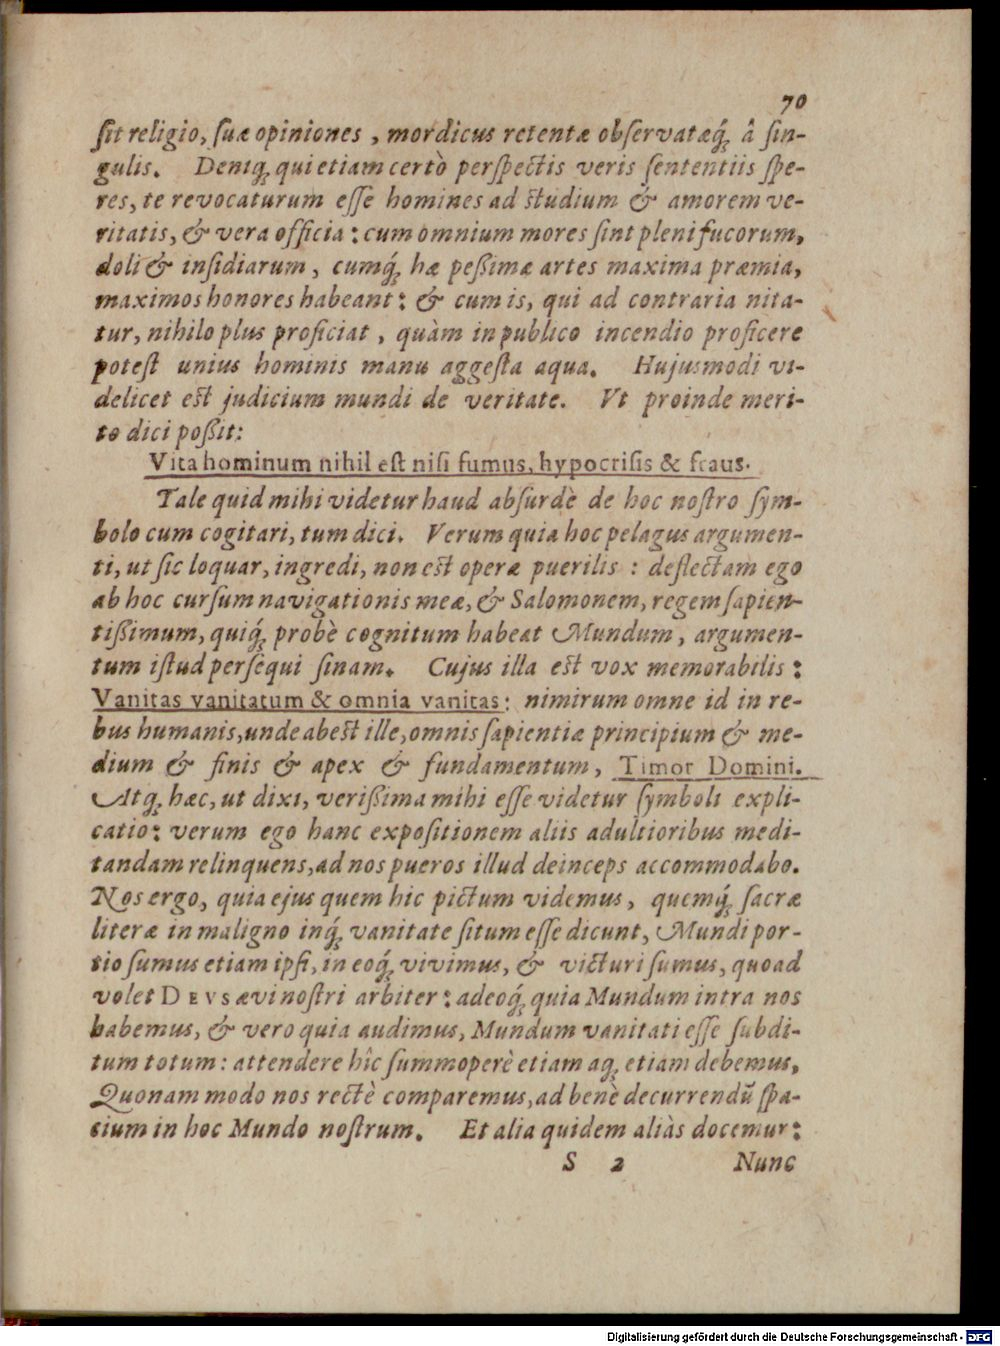 70
ſit religio, ſuæ opiniones, mordicus retentæ obſervatæq́; â ſin-
gulis. Deniq; qui etiam certò perſpectis veris ſententiis ſpe-
res, te revocaturum eſſe homines ad ſtudium & amorem ve-
ritatis, & vera officia: cum omnium mores ſint pleni fucorum,
doli & inſidiarum, cumq́; hæ peßimæ artes maxima præmia,
maximos honores habeant: & cum is, qui ad contraria nita-
tur, nihilo plus proficiat, quàm in publico incendio proficere
poteſt unius hominis manu aggeſta aqua. Hujusmodi vi-
delicet eſt judicium mundi de veritate. Vt proinde meri-
to dici poßit:
Vita hominum nihil eſt niſi fumus, hypocriſis & fraus.
Tale quid mihi videtur haud abſurdè de hoc noſtro ſym-
bolo cum cogitari, tum dici. Verum quia hoc pelagus argumen-
ti, ut ſic loquar, ingredi, non eſt operæ puerilis: deflectam ego
ab hoc curſum navigationis meæ, & Salomonem, regem ſapien-
tißimum, quiq́; probè cognitum habeat Mundum, argumen-
tum iſtud perſèqui ſinam. Cujus illa eſt vox memorabilis:
Vanitas vanitatum & omnia vanitas: nimirum omne id in re-
bus humanis, unde abeſt ille, omnis ſapientiæ principium & me-
dium & finis & apex & fundamentum, Timor Domini.
Atq; hæc, ut dixi, verißima mihi eſſe videtur ſymboli expli-
catio: verum ego hanc expoſitionem aliis adultioribus medi-
tandam relinquens, ad nos pueros illud deinceps accommodabo.
Nos ergo, quia ejus quem hic pictum videmus, quemq́; ſacræ
literæ in maligno inq́; vanitate ſitum eſſe dicunt, Mundi por-
tio ſumus etiam ipſi, in eoq́; vivimus, & victuri ſumus, quoad
volet DEVS ævi noſtri arbiter: adeoq́; quia Mundum intra nos
habemus, & vero quia audimus, Mundum vanitati eſſe ſubdi-
tum totum: attendere hîc ſummoperè etiam aq; etiam debemus,
Quonam modo nos rectè comparemus, ad benè decurrendū ſpa-
cium in hoc Mundo noſtrum. Et alia quidem aliàs docemur:
S 2 Nunc
Digitalisierung gefördert durch die Deutsche Forschungsgemeinschaft - DFG